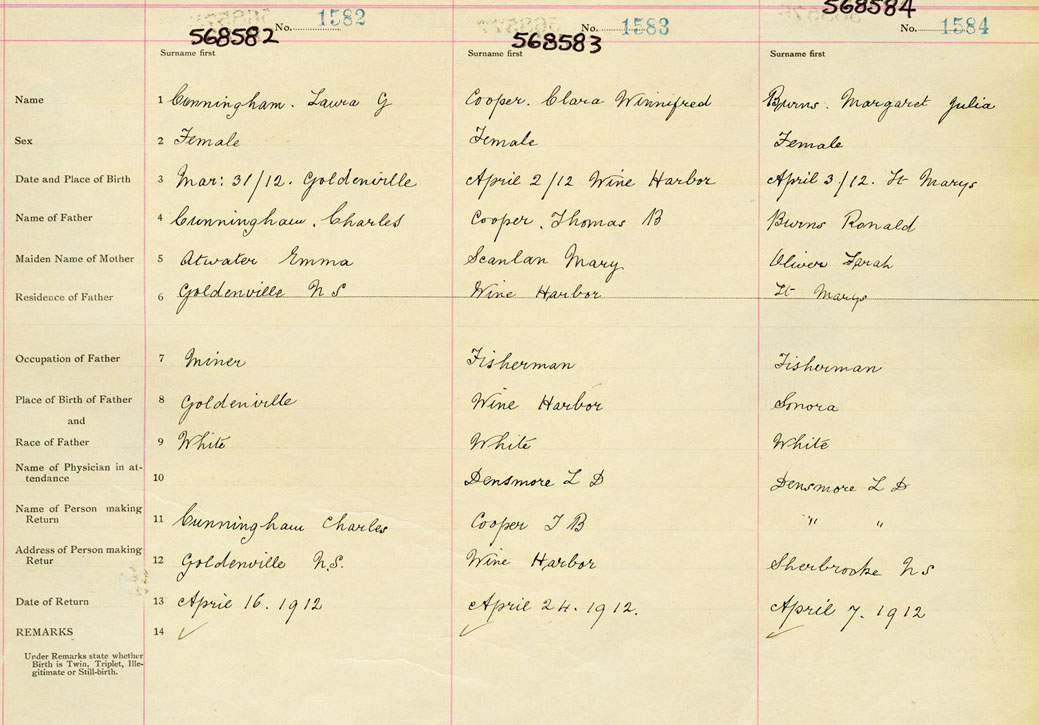 No. 1582 No. 1583 No. 1584
568582 568583 568584
Surname first Surname first Surname first
Name 1 Cunningham. Laura G Cooper. Clara Winnifred Burns. Margaret Julia
Sex 2 Female Female Female
Date and Place of Birth 3 Mar: 31/12. Goldenville April 2/12 Wine Harbor April 3/12. St Marys
Name of Father 4 Cunningham. Charles Cooper. Thomas B Burns Ronald
Maiden Name of Mother 5 Atwater Emma Scanlan Mary Oliver Sarah
Residence of Father 6 Goldenville N S Wine Harbor St Marys
Occupation of Father 7 Miner Fisherman Fisherman
Place of Birth of Father 8 Goldenville Wine Harbor Sonora
and
Race of Father 9 White White White
Name of Physician in at-
tendance 10 Densmore L D Densmore L D
Name of Person making
Return 11 Cunningham Charles Cooper T B " "
Address of Person making
Retur 12 Goldenville N.S. Wine Harbor Sherbrooke N S
Date of Return 13 April 16. 1912 April 24. 1912. April 7. 1912
REMARKS 14 ✓ ✓ ✓
Under Remarks state whether
Birth is Twin, Triplet, Ille-
gitimate or Still-birth.